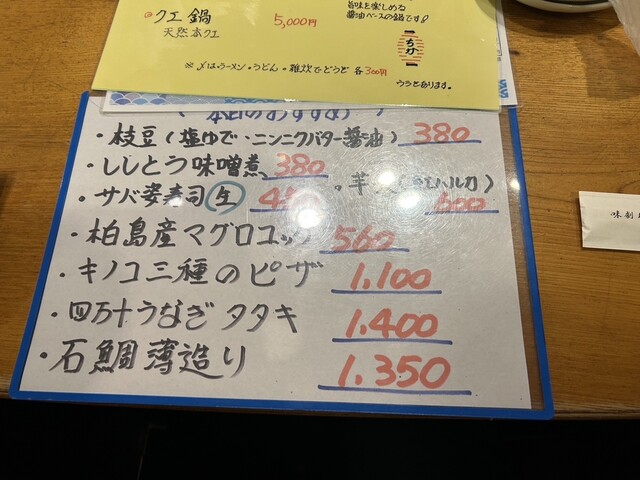 ◎クエ鍋 5,000円
天然本クエ
旨味を楽しめる
醤油ベースの鍋です!
※〆はラーメン・うどん・雑炊でどうぞ 各300円
うちどあります。
本日のおすすめ
・枝豆(塩ゆで・ニンニクバター醤油) 380
・ししとう味噌煮 380
・サバ姿寿司 生
・芋 600
・柏島産マグロユッケ 560
・キノコ三種のピザ 1.100
・四万十うなぎタタキ 1.400
・石鯛薄造り 1.350
味刻